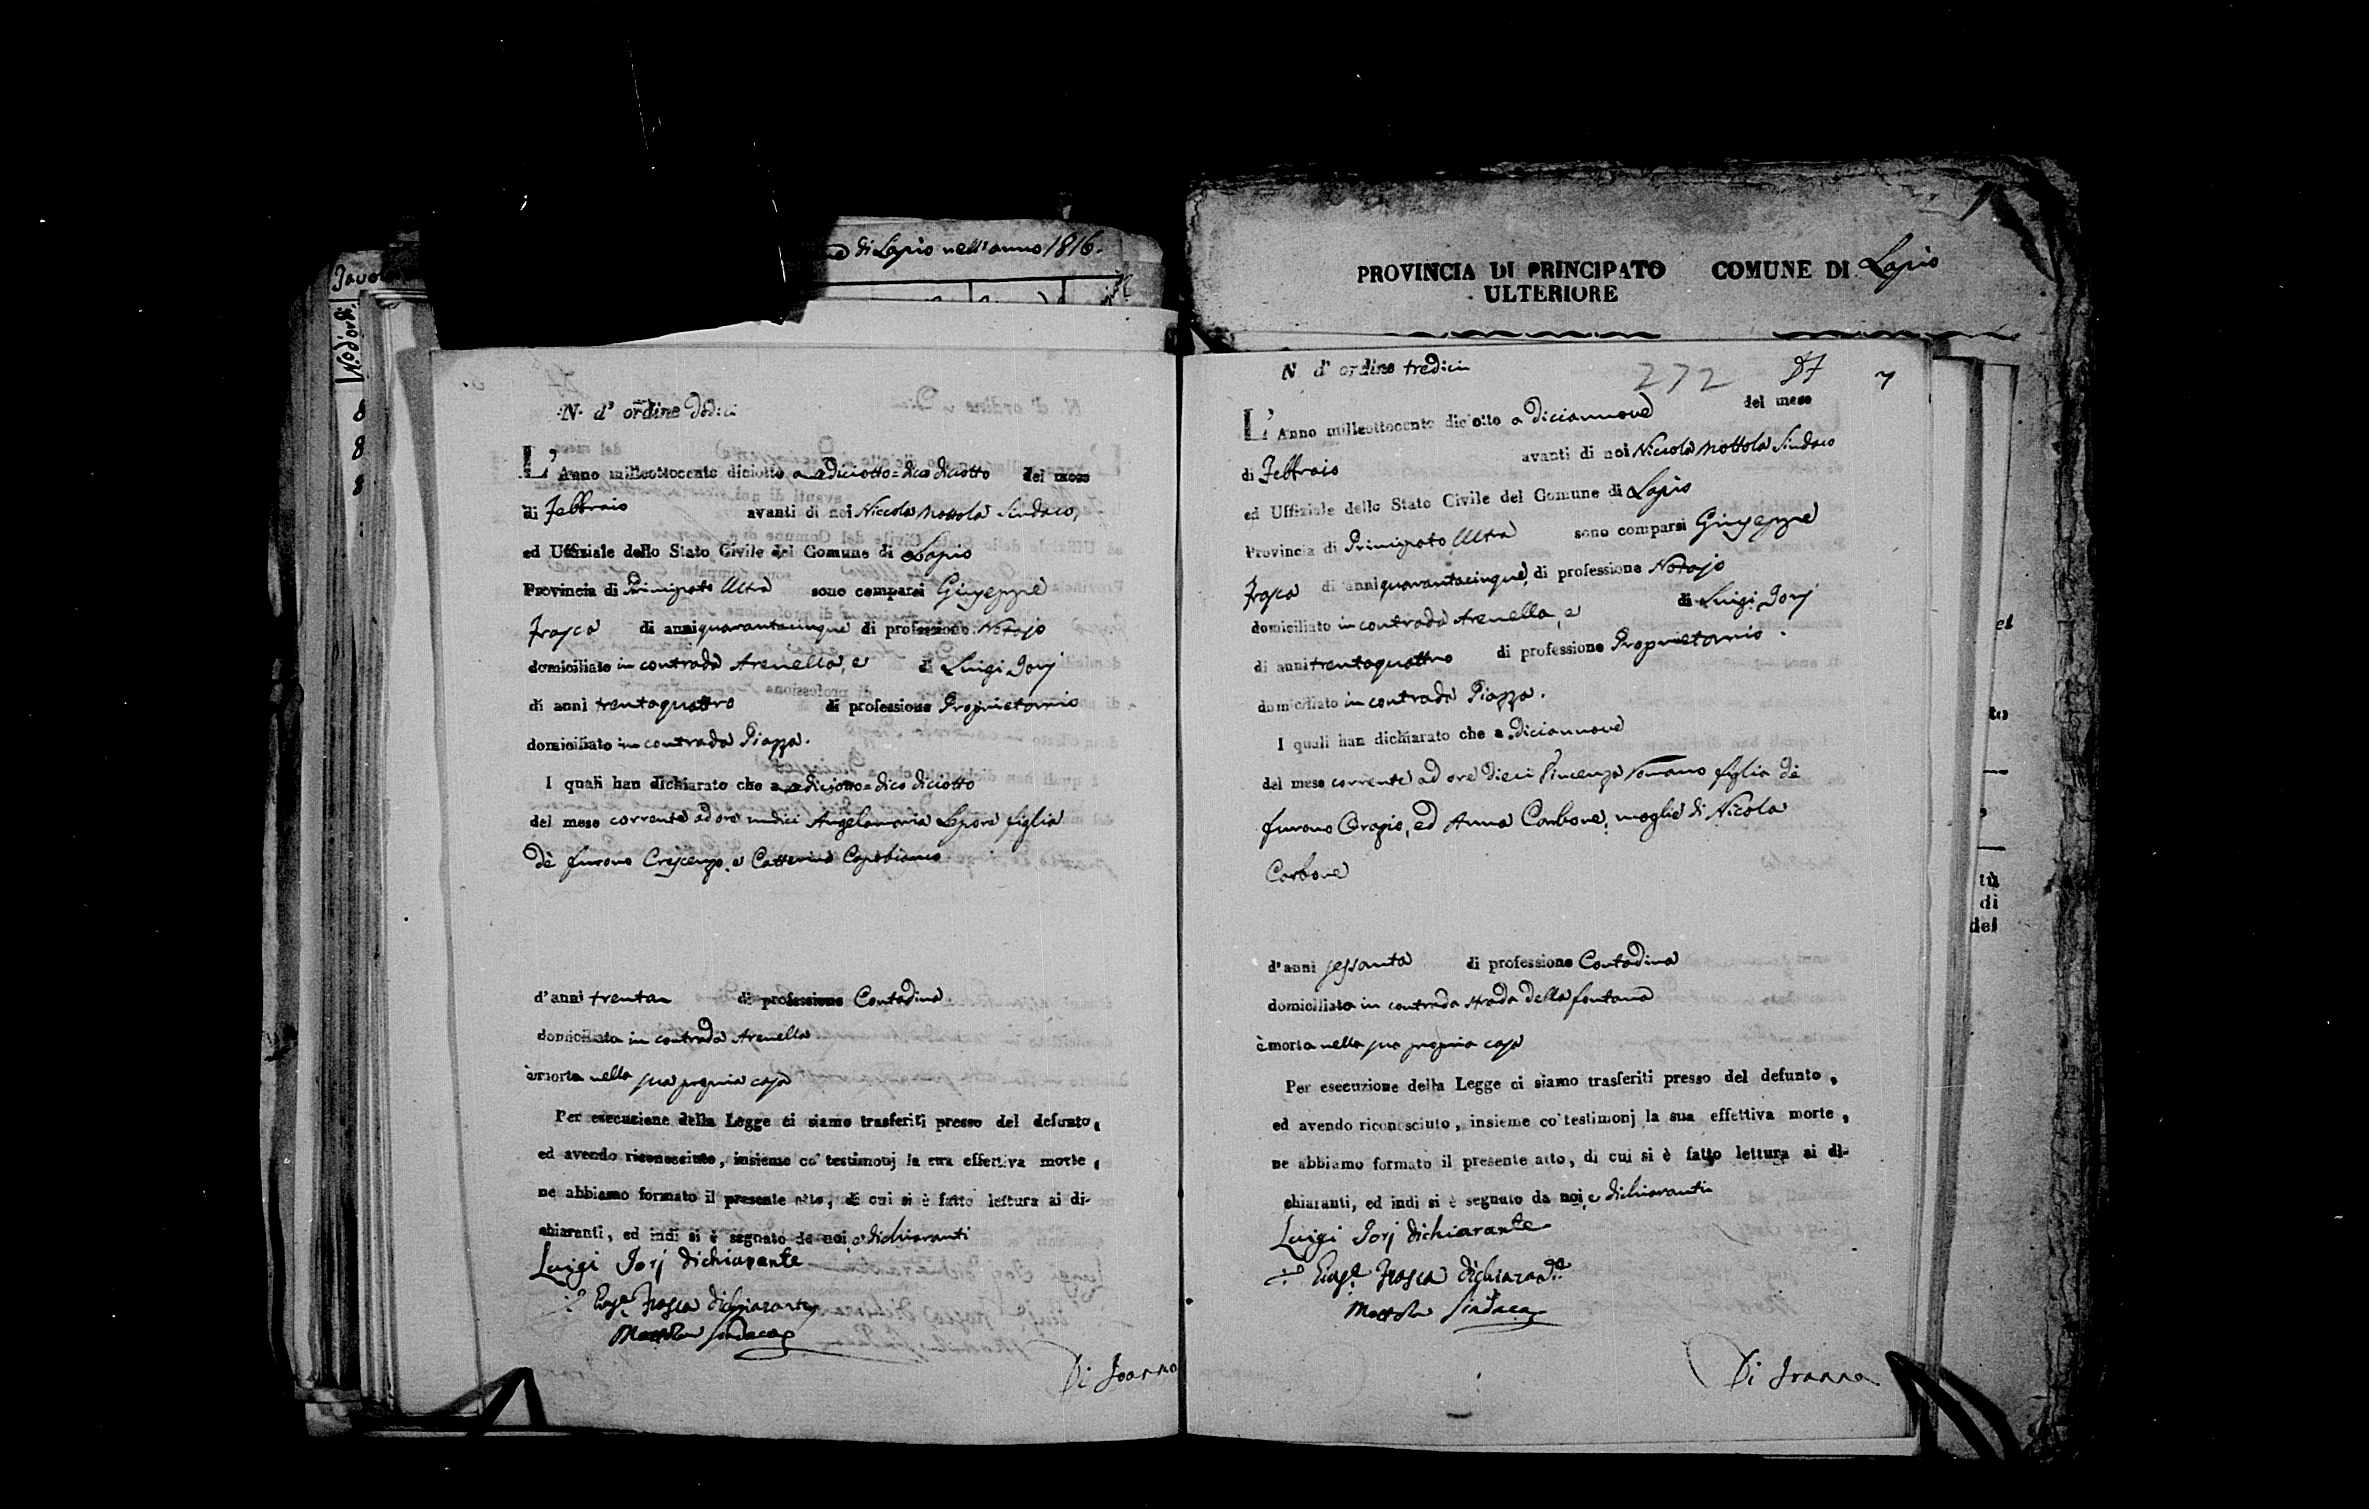 di Lapio nell'anno 1816.
Tavo
N. d'ordi
8
8
8
N. d' ordine Dodici
L' Anno milleottocento diciotto a diciotto = dico diciotto del mese
di Febbraio avanti di noi Niccola Mottola Sindaco,
ed Uffiziale dello Stato Civile del Comune di Lapio
Provincia di Principato Ultra sono comparsi Giuseppe
Frasca di anni quarantacinque di professione Notajo
domiciliato in contrada Arenella, e di Luigi Jorj
di anni trentaquattro di professione Proprietario
domiciliato in contrada Piazza.
I quali han dichiarato che a diciotto = dico diciotto
del mese corrente ad ore undici Angelamaria Lepore figlia
de furono Crescenzo, e Catterina Capobianco
d'anni trenta di professione Contadina.
domiciliata in contrada Arenella
è morta nella sua propria casa
Per esecuzione della Legge ci siamo trasferiti presso del defunto,
ed avendo riconosciuto, insieme co' testimonj la sua effettiva morte,
ne abbiamo formato il presente atto, di cui si è fatto lettura ai di-
chiaranti, ed indi si è segnato da noi, e dichiaranti
Luigi Jorj dichiarante
Frasca dichiarante
Mottola Sindaco
Di Joanna
PROVINCIA DI PRINCIPATO COMUNE DI Lapio
ULTERIORE
N d' ordine tredici
272 7
L' Anno milleottocento diciotto a diciannove del mese
di Febbraio avanti di noi Niccola Mottola Sindaco
ed Uffiziale dello Stato Civile del Comune di Lapio
Provincia di Principato Ultra sono comparsi Giuseppe
Frasca di anni quarantacinque, di professione Notajo
domiciliato in contrada Arenella, e di Luigi Jorj
di anni trentaquattro di professione Proprietario.
domiciliato in contrada Piazza.
I quali han dichiarato che a diciannove
del mese corrente ad ore dieci Vincenza Romano figlia de
furono Orazio, ed Anna Carbone, moglie di Nicola
Carbone
d'anni sessanta di professione Contadina
domiciliata in contrada strada della fontana
è morta nella sua propria casa
Per esecuzione della Legge ci siamo trasferiti presso del defunto,
ed avendo riconosciuto, insieme co' testimonj la sua effettiva morte,
ne abbiamo formato il presente atto, di cui si è fatto lettura ai di-
chiaranti, ed indi si è segnato da noi, e dichiaranti
Luigi Jorj dichiarante
Frasca dichiarante
Mottola Sindaco
Di Joanna
et
to
tù
di
del